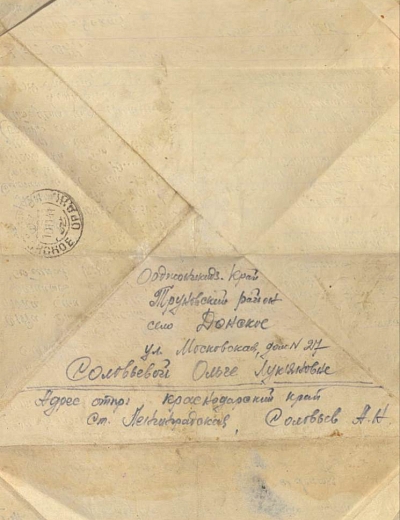 Орджоникидз. Край
Труновский район
село Донское
ул. Московская, дом N 217
Соловьевой Ольге Лукиновне
Адрес отпр: Краснодарский край
Ст. Ленинградская, Соловьев А.Н